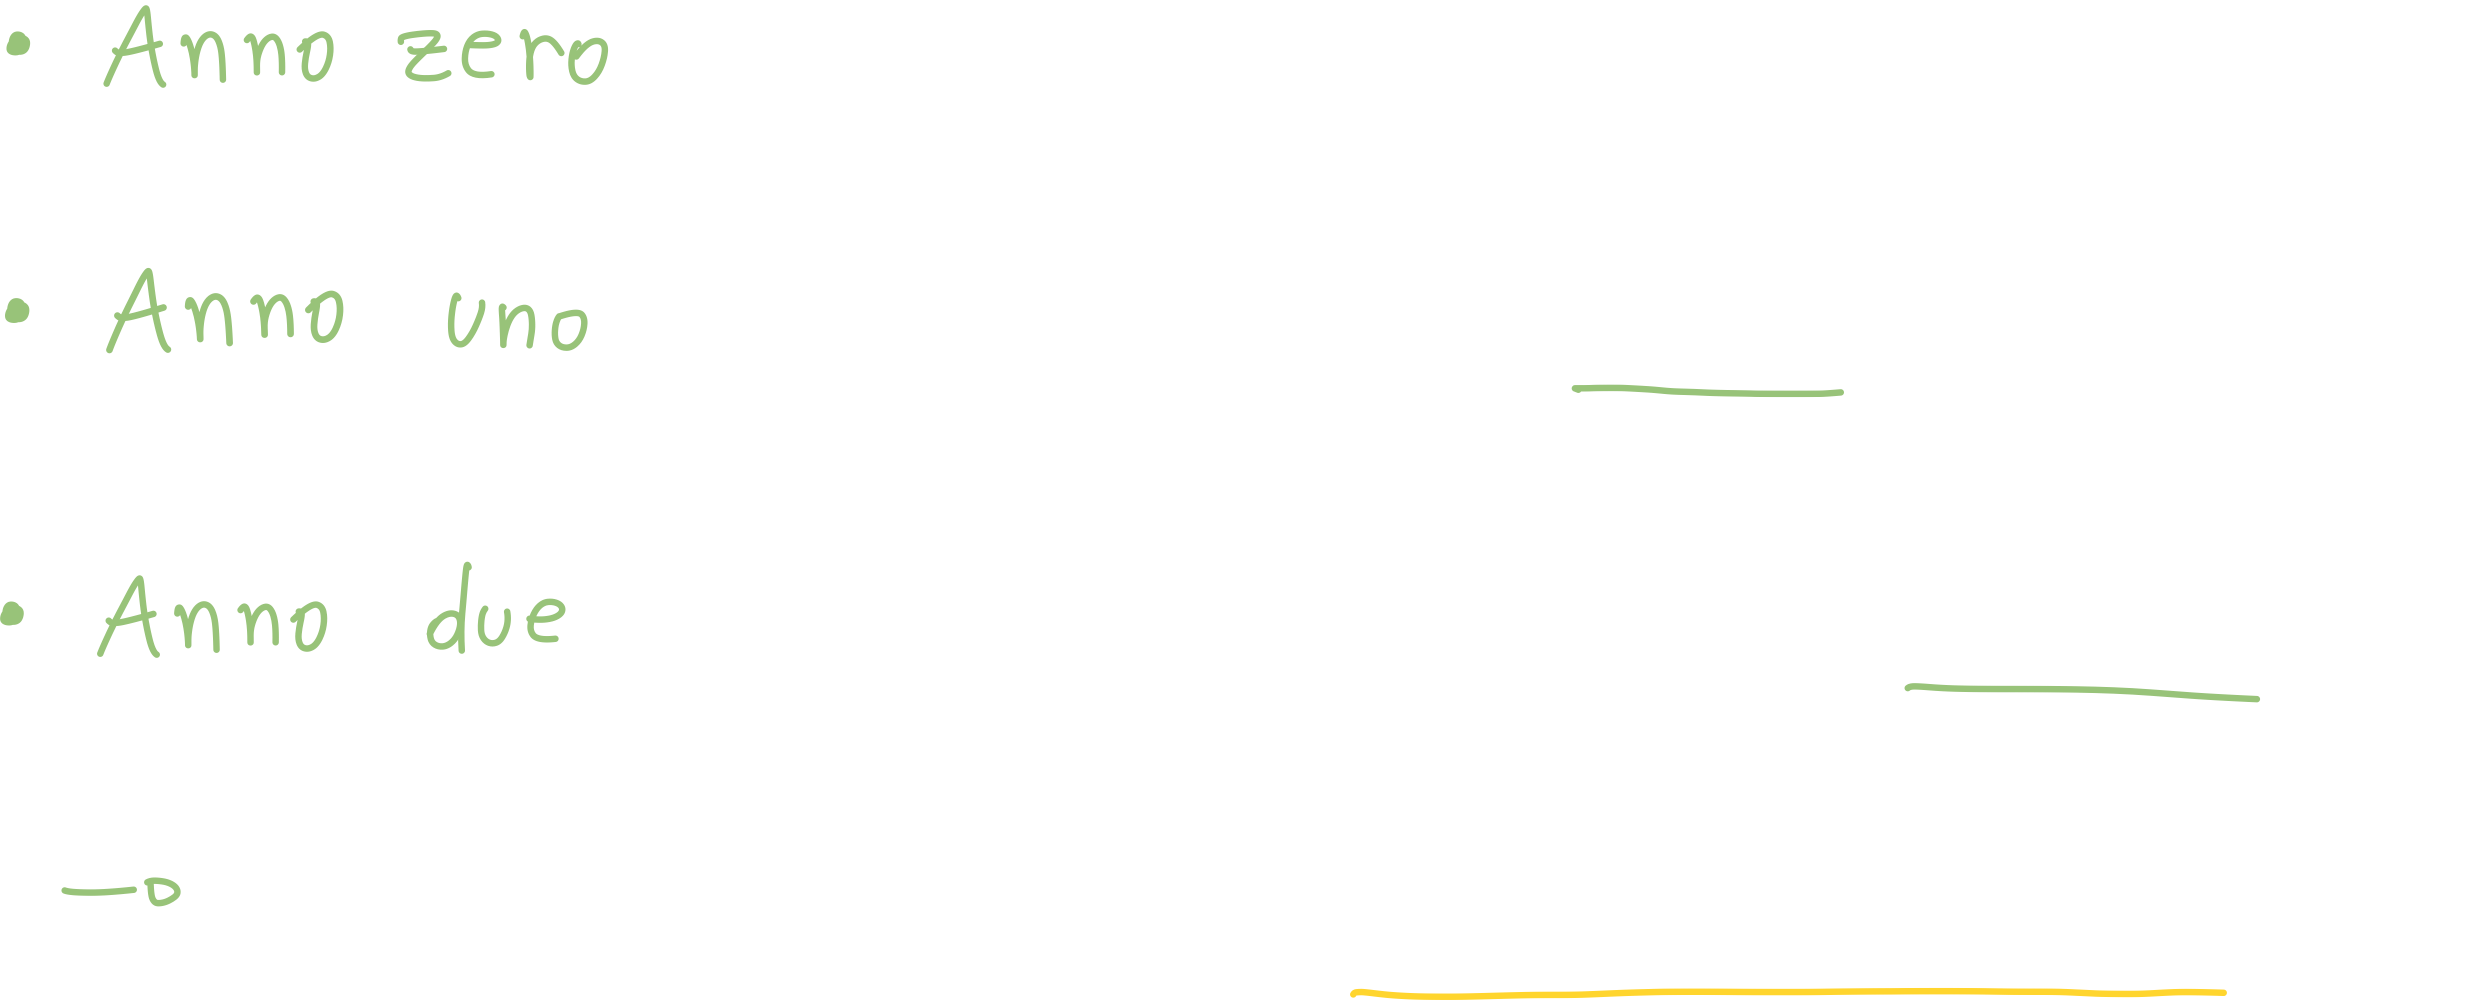 • Anno zero
• Anno uno
• Anno due